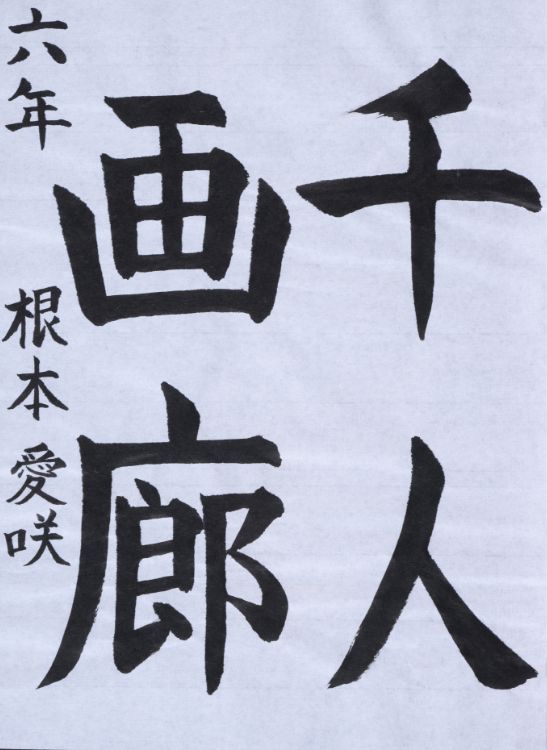 千人
画廊
六年 根本愛咲